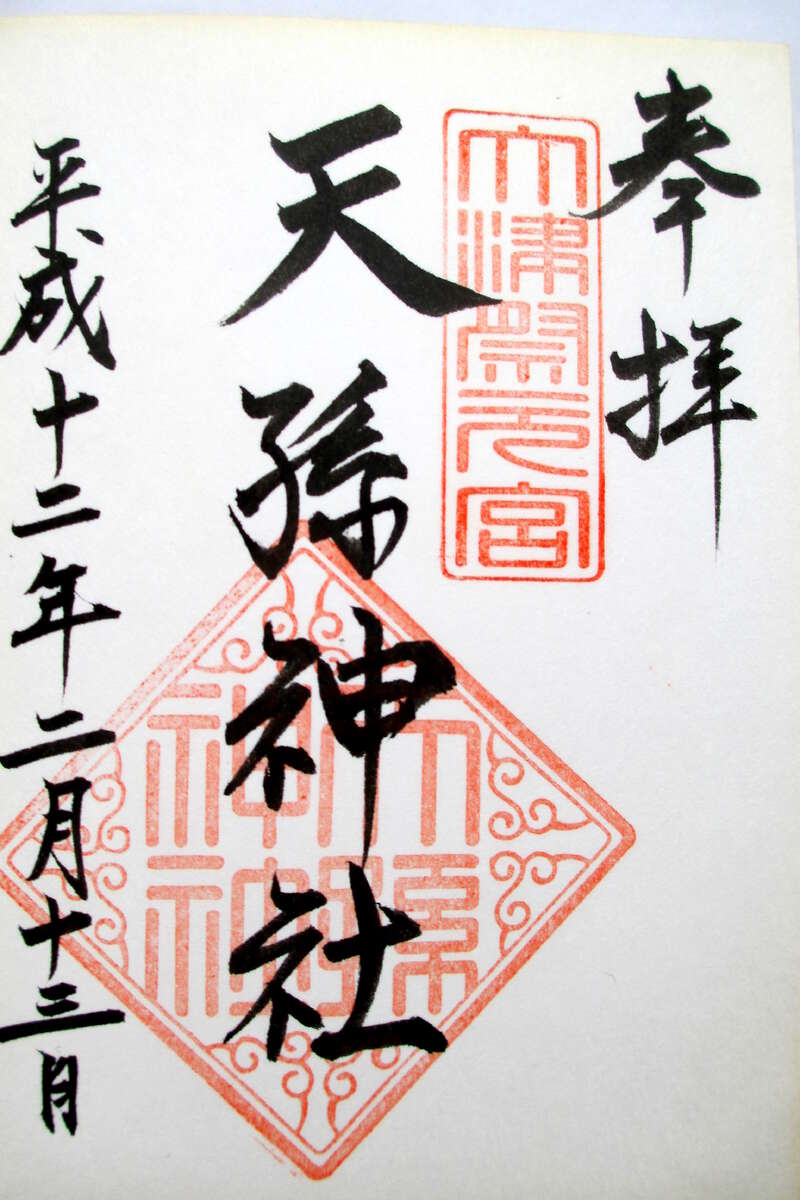 奉拝
大津祭元宮
天孫神社
天孫
神社
平成十二年二月十三日